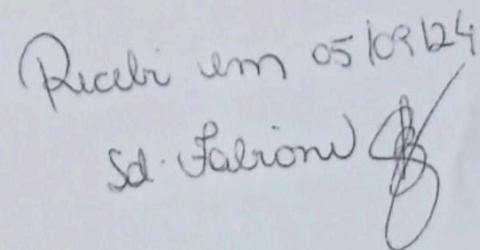 Recebi em 05/09/24
Sd. Fabione